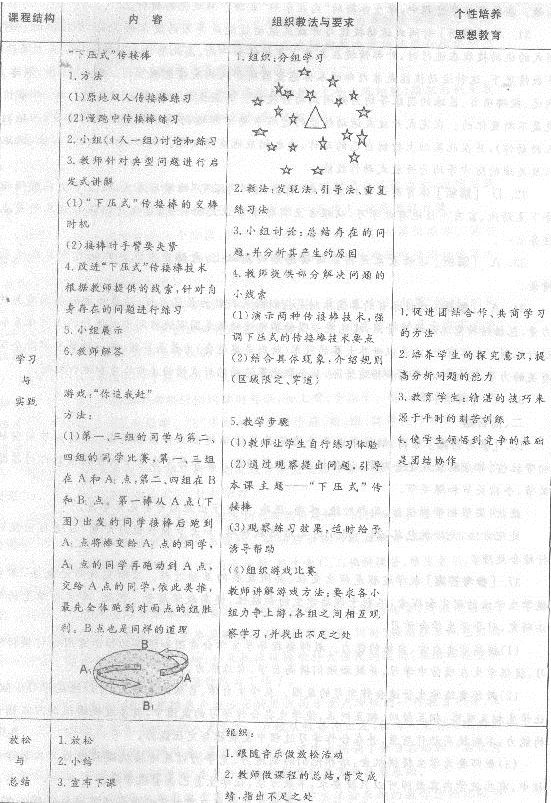 课程结构
内 容
组织教法与要求
个性培养
思想教育
学习
与
实践
“下压式”传接棒
1.方法
(1)原地双人传接棒练习
(2)慢跑中传接棒练习
2.小组(4人一组)讨论和练习
3.教师针对典型问题进行启
发式讲解
(1)“下压式”传接棒的交棒
时机
(2)接棒时手臂要夹紧
4.改进“下压式”传接棒技术
根据教师提供的线索,针对自
身存在的问题进行练习
5.小组展示
6.教师解答
游戏:“你追我赶”
方法:
(1)第一、三组的同学与第二、
四组的同学比赛,第一、三组
在A和A₁点,第二、四组在B
和B₁点。第一棒从A点(下
图)出发的同学接棒后跑到
A₁点将棒交给A₁点的同学,
A₁点的同学再跑动到A点,
交给A点的同学,依此类推,
最先全体跑到对面点的组胜
利。B点也是同样的道理
B
A₁
A
B₁
1.组织:分组学习
2.教法:发现法、引导法、重复
练习法
3.小组讨论:总结存在的问
题,并分析其产生的原因
4.教师提供部分解决问题的
小线索
(1)演示两种传接棒技术,强
调下压式的传接棒技术要点
(2)结合具体现象,介绍规则
(区域限定、窜道)
5.教学步骤
(1)教师让学生自行练习体验
(2)通过观察提出问题,引导
本课主题——“下压式”传
接棒
(3)观察练习效果,适时给予
诱导帮助
(4)组织游戏比赛
教师讲解游戏方法;要求各小
组力争上游,各组之间相互观
察学习,并找出不足之处
1.促进团结合作、共商学习
的方法
2.培养学生的探究意识,提
高分析问题的能力
3.教育学生:精湛的技巧来
源于平时的刻苦训练
4.使学生领悟到竞争的基础
是团结协作
放松
与
总结
1.放松
2.小结
3.宣布下课
组织:
1.跟随音乐做放松活动
2.教师做课程的总结,肯定成
绩,指出不足之处